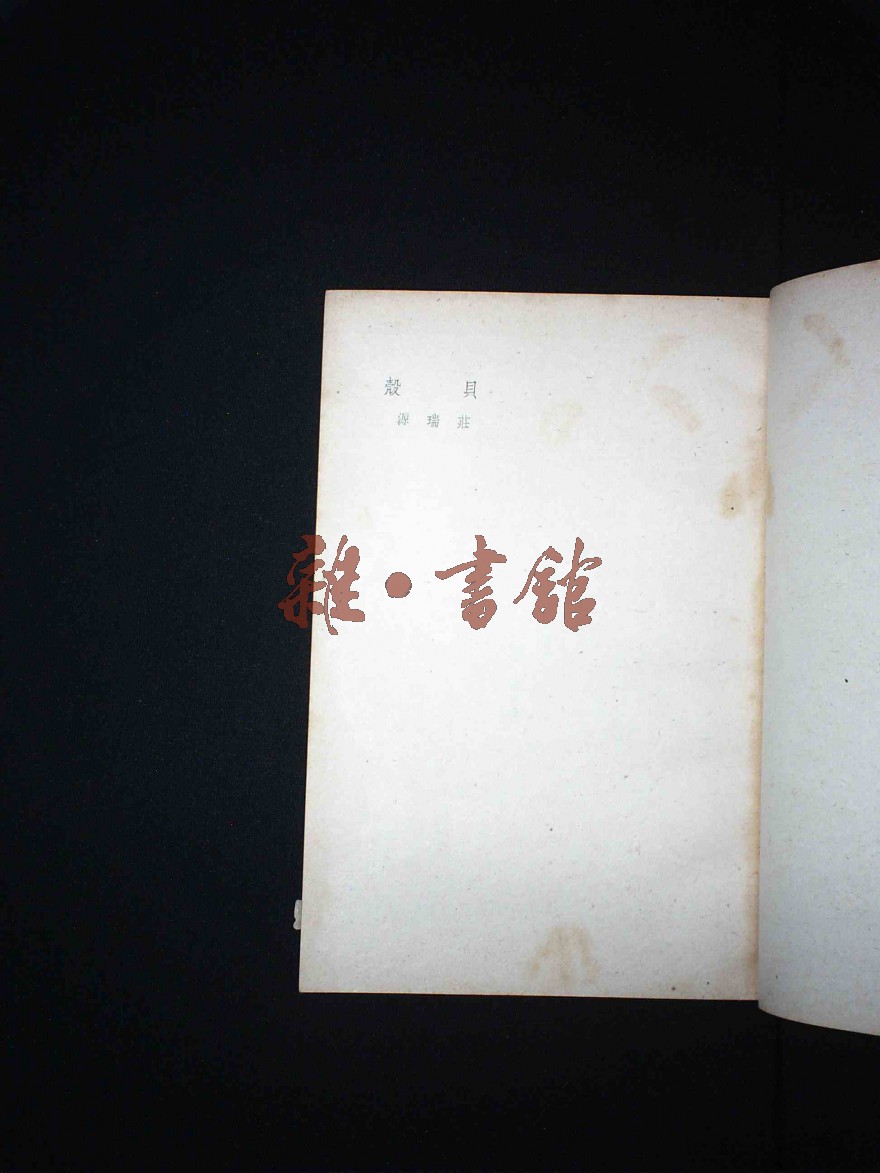 貝殼
莊瑞源
雜·書館